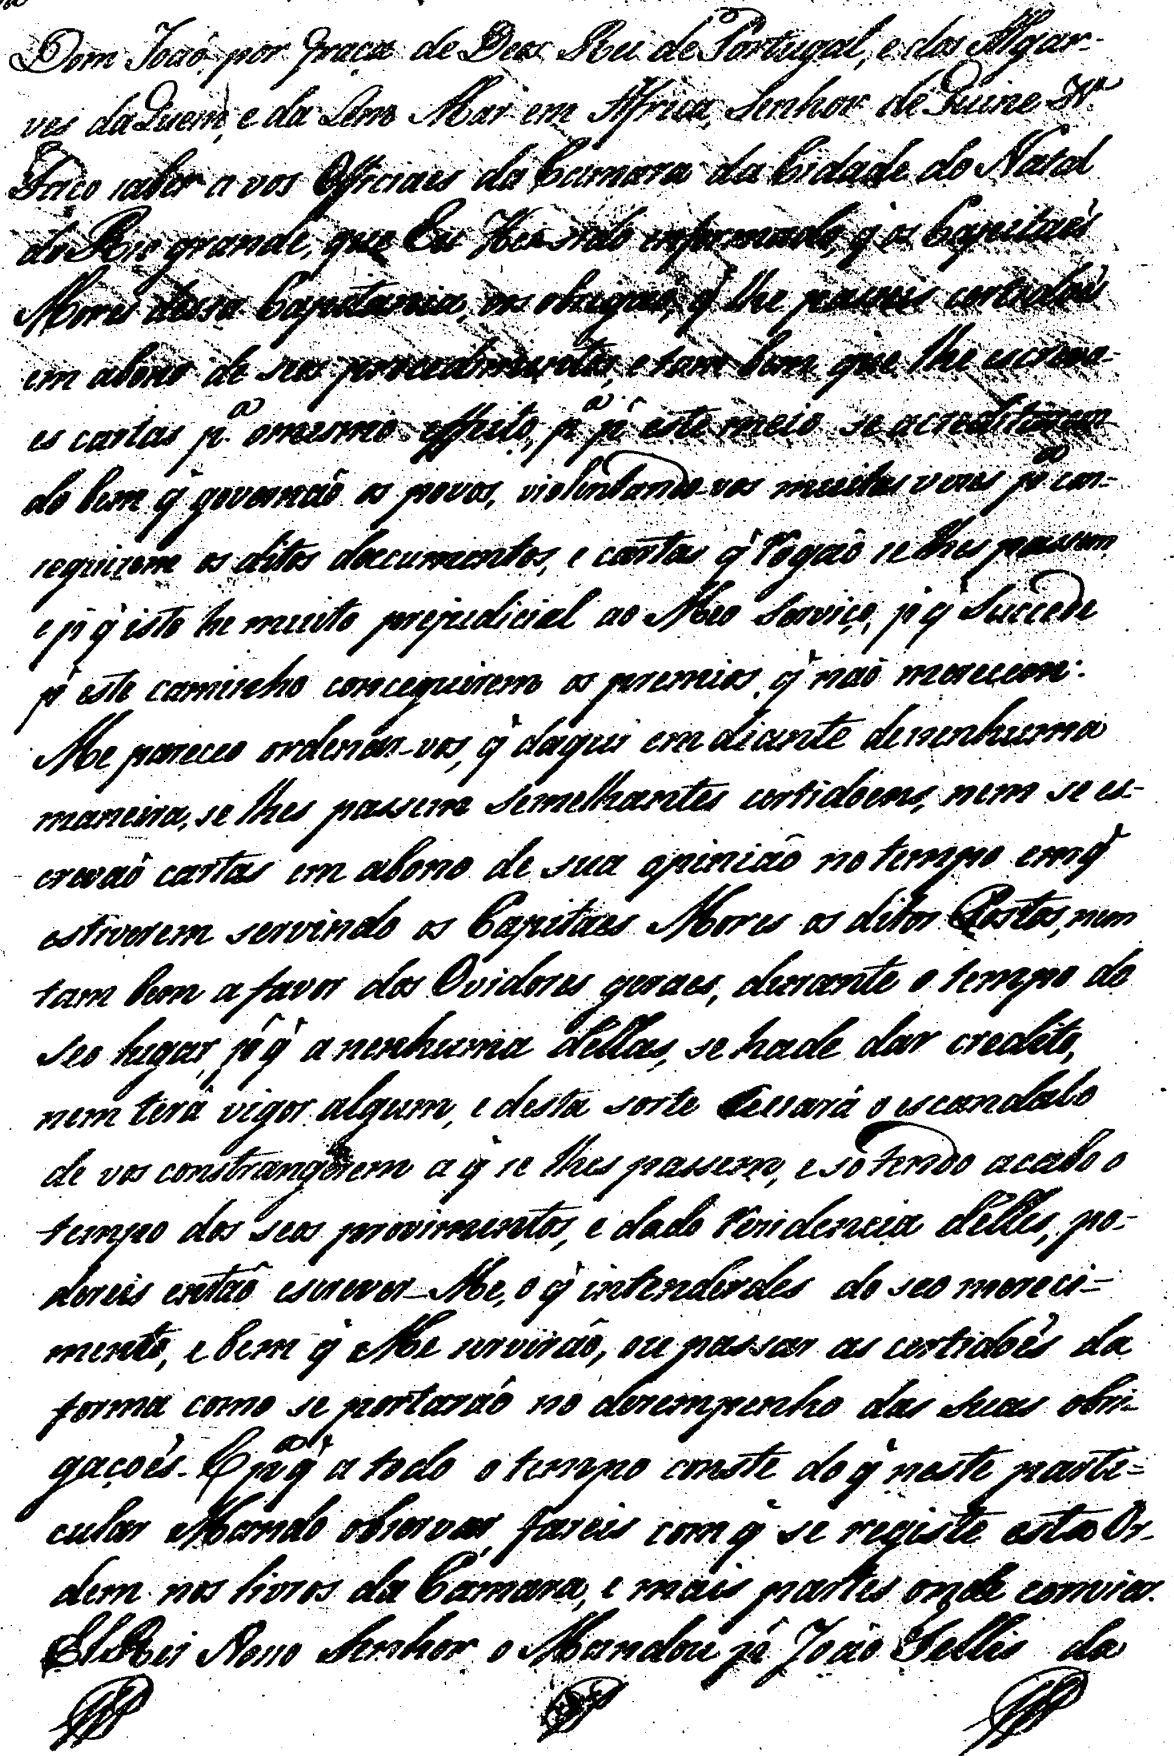 Dom João por graça de Deos Rei de Portugal, e dos Algar-
ves da Quem, e da Lem Mar em Africa, Senhor de Guine &ª
Faço saber a vos Officiaes da Camara da Cidade do Natal
do Rio grande, que Eu Hei sido informado, q̃ os Capitaẽs
Mores dessa Capitania, vos obrigaõ, q̃ lhe passeis certidoẽs
em abono de seos procedimentos, e tam bem que lhe escreva-
es cartas p.ª o mesmo effeito, p.ª p̃ este meio se acreditarem
do bem q̃ governão os povos, violentando-vos muitas vezes p.ª con-
seguirem os ditos documentos, e cartas q̃ rogaõ se lhes passem
e p̃ q̃ isto he muito prejudicial ao Meo Serviço, p̃ q̃ Succede
p̃ este caminho conceguirem os premios q̃ naõ merecem:
Me pareceo ordenar-vos, q̃ daqui em diante de nenhuma
maneira, se lhes passem semelhantes certidoens, nem se es-
crevaõ cartas em abono de sua opinião no tempo em q̃
estiverem servindo os Capitaes Mores os ditos Postos, nem
tam bem a favor dos Ouvidores geraes, durante o tempo do
seo lugar, p̃ q̃ a nenhuma dellas, se hade dar credito,
nem terá vigor algum, e desta sorte Cessará o escandalo
de vos constrangerem a q̃ se lhes passem, e só tendo acabo o
tempo dos seos provimentos, e dado residencia delles, po-
dereis então escrever-Me, o q̃ intenderdes do seo mereci-
mento, e bem q̃ Me serviráõ, ou passar as certidoẽs da
forma como se portaráõ no desempenho das suas obri-
gaçoẽs. E p.ª q̃ a todo o tempo conste do q̃ neste parti-
cular Mando observar, fareis com q̃ se registe esta Or-
dem nos livros da Camara, e mais partes onde convier.
El Rei Nosso Senhor o Mandou p̃ João Tellis da